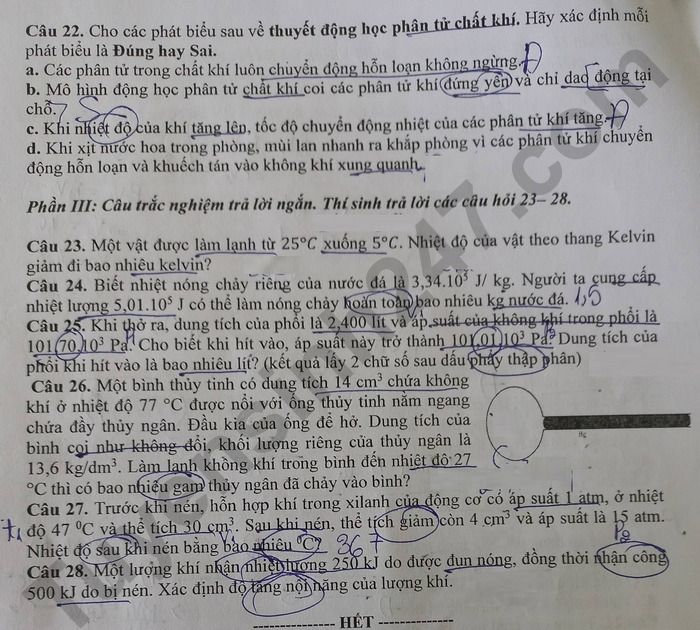 Câu 22. Cho các phát biểu sau về thuyết động học phân tử chất khí. Hãy xác định mỗi
phát biểu là Đúng hay Sai.
a. Các phân tử trong chất khí luôn chuyển động hỗn loạn không ngừng. Đ
b. Mô hình động học phân tử chất khí coi các phân tử khí đứng yên và chỉ dao động tại
chỗ. S
c. Khi nhiệt độ của khí tăng lên, tốc độ chuyển động nhiệt của các phân tử khí tăng. Đ
d. Khi xịt nước hoa trong phòng, mùi lan nhanh ra khắp phòng vì các phân tử khí chuyển
động hỗn loạn và khuếch tán vào không khí xung quanh.
Phần III: Câu trắc nghiệm trả lời ngắn. Thí sinh trả lời các câu hỏi 23– 28.
Câu 23. Một vật được làm lạnh từ 25°C xuống 5°C. Nhiệt độ của vật theo thang Kelvin
giảm đi bao nhiêu kelvin?
Câu 24. Biết nhiệt nóng chảy riêng của nước đá là 3,34.10⁵ J/ kg. Người ta cung cấp
nhiệt lượng 5,01.10⁵ J có thể làm nóng chảy hoàn toàn bao nhiêu kg nước đá. 1,5
Câu 25. Khi thở ra, dung tích của phổi là 2,400 lít và áp suất của không khí trong phổi là
101,70.10³ Pa. Cho biết khi hít vào, áp suất này trở thành 101,01.10³ Pa. Dung tích của
phổi khi hít vào là bao nhiêu lít? (kết quả lấy 2 chữ số sau dấu phẩy thập phân)
Câu 26. Một bình thủy tinh có dung tích 14 cm³ chứa không
khí ở nhiệt độ 77 °C được nối với ống thủy tinh nằm ngang
chứa đầy thủy ngân. Đầu kia của ống để hở. Dung tích của
bình coi như không đổi, khối lượng riêng của thủy ngân là
13,6 kg/dm³. Làm lạnh không khí trong bình đến nhiệt độ 27
°C thì có bao nhiêu gam thủy ngân đã chảy vào bình?
Hg
Câu 27. Trước khi nén, hỗn hợp khí trong xilanh của động cơ có áp suất 1 atm, ở nhiệt
độ 47 ⁰C và thể tích 30 cm³. Sau khi nén, thể tích giảm còn 4 cm³ và áp suất là 15 atm.
Nhiệt độ sau khi nén bằng bao nhiêu °C? 367
Câu 28. Một lượng khí nhận nhiệt lượng 250 kJ do được đun nóng, đồng thời nhận công
500 kJ do bị nén. Xác định độ tăng nội năng của lượng khí.
--------------- HẾT --------------